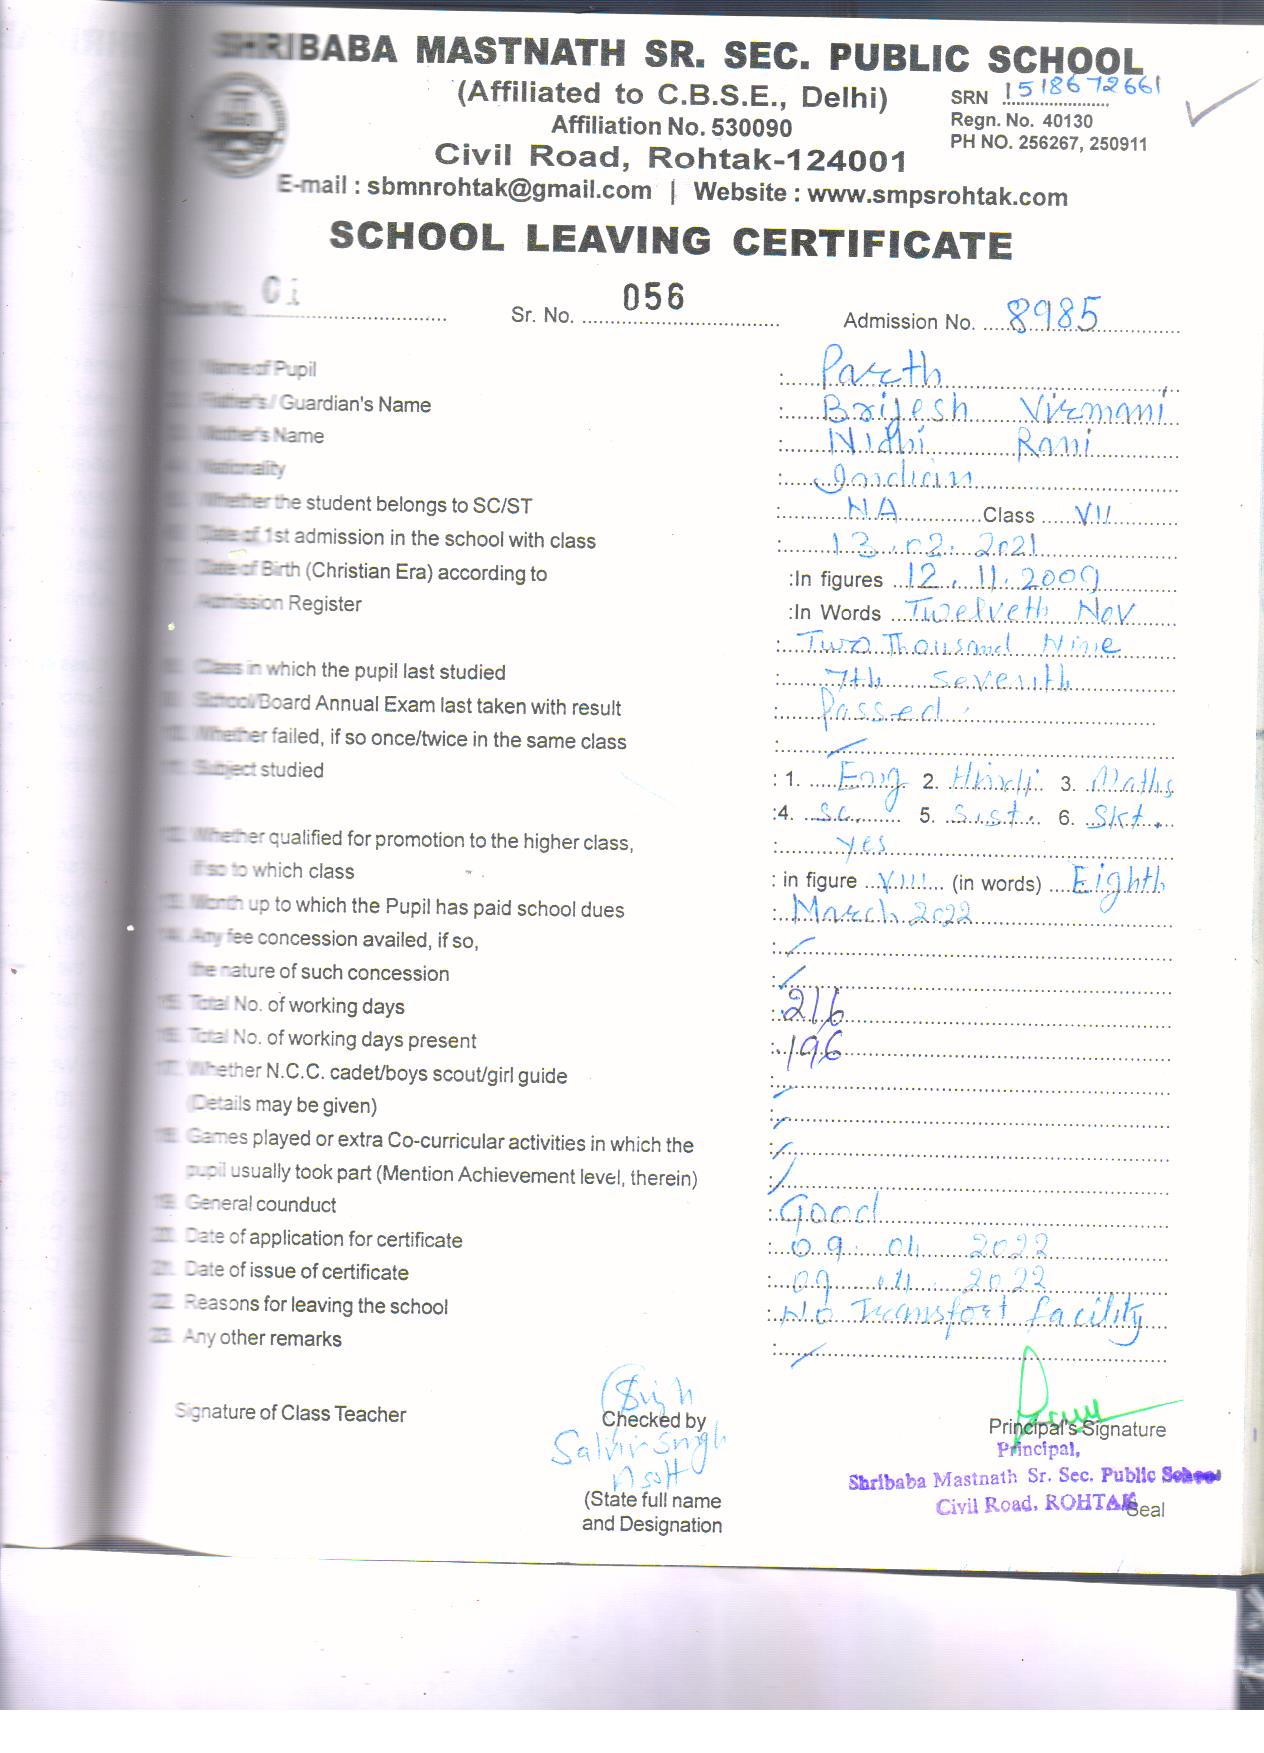 SHRIBABA MASTNATH SR. SEC. PUBLIC SCHOOL
(Affiliated to C.B.S.E., Delhi)
SRN 1518672661
Affiliation No. 530090
Regn. No. 40130
Civil Road, Rohtak-124001
PH NO. 256267, 250911
E-mail : sbmnrohtak@gmail.com | Website : www.smpsrohtak.com
SCHOOL LEAVING CERTIFICATE
Sr. No. 056 Admission No. 8985
Name of Pupil : Parth
Father's / Guardian's Name : Brijesh Virmani
Mother's Name : Nidhi Rani
Nationality : Indian
Whether the student belongs to SC/ST : NA Class VII
Date of 1st admission in the school with class : 13.02.2021
Date of Birth (Christian Era) according to :In figures 12.11.2009
Admission Register :In Words Twelveth Nov
: Two Thousand Nine
Class in which the pupil last studied : 7th Seventh
School/Board Annual Exam last taken with result : Passed
10. Whether failed, if so once/twice in the same class :
11. Subject studied : 1. Eng 2. Hindi 3. Maths
:4. Sc. 5. S.st. 6. Skt.
12. Whether qualified for promotion to the higher class, : yes
if so to which class : in figure VIII (in words) Eighth
13. Month up to which the Pupil has paid school dues : March 2022
14. Any fee concession availed, if so, :
the nature of such concession :
15. Total No. of working days : 216
16. Total No. of working days present : 196
17. Whether N.C.C. cadet/boys scout/girl guide :
(Details may be given) :
18. Games played or extra Co-curricular activities in which the :
pupil usually took part (Mention Achievement level, therein) :
19. General counduct : Good
20. Date of application for certificate : 09.04.2022
21. Date of issue of certificate : 09.04.2022
22. Reasons for leaving the school : No Transfort facility
23. Any other remarks :
Signature of Class Teacher Checked by Principal's Signature
Principal,
Shribaba Mastnath Sr. Sec. Public School
(State full name Civil Road, ROHTAK Seal
and Designation